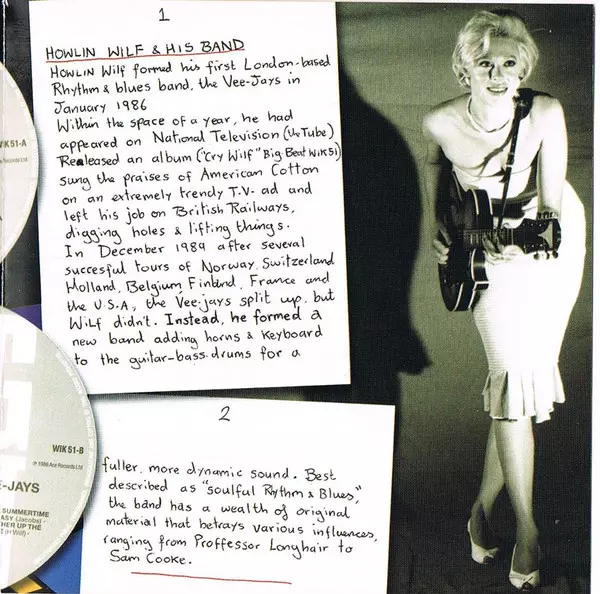 1
HOWLIN WILF & HIS BAND
HOWLIN Wilf formed his first London-based
Rhythm & blues band, the Vee-Jays in
January 1986
Within the space of a year, he had
appeared on National Television (The Tube)
Released an album ("Cry Wilf" Big Beat WIK 51)
sung the praises of American Cotton
on an extremely trendy T.V. ad and
left his job on British Railways,
digging holes & lifting things.
In December 1989 after several
succesful tours of Norway, Switzerland
Holland, Belgium Finland, France and
the U.S.A, the Vee-jays split up, but
Wilf didn't. Instead, he formed a
new band adding horns & keyboard
to the guitar-bass-drums for a
2
fuller, more dynamic sound. Best
described as "soulful Rhythm & Blues,"
the band has a wealth of original
material that betrays various influences,
ranging from Proffessor Longhair to
Sam Cooke.
WIK 51-A
Records Ltd
WIK 51-B
℗ 1986 Ace Records Ltd
E-JAYS
SUMMERTIME
ASY (Jacobs) -
THER UP THE
(H Wilf)